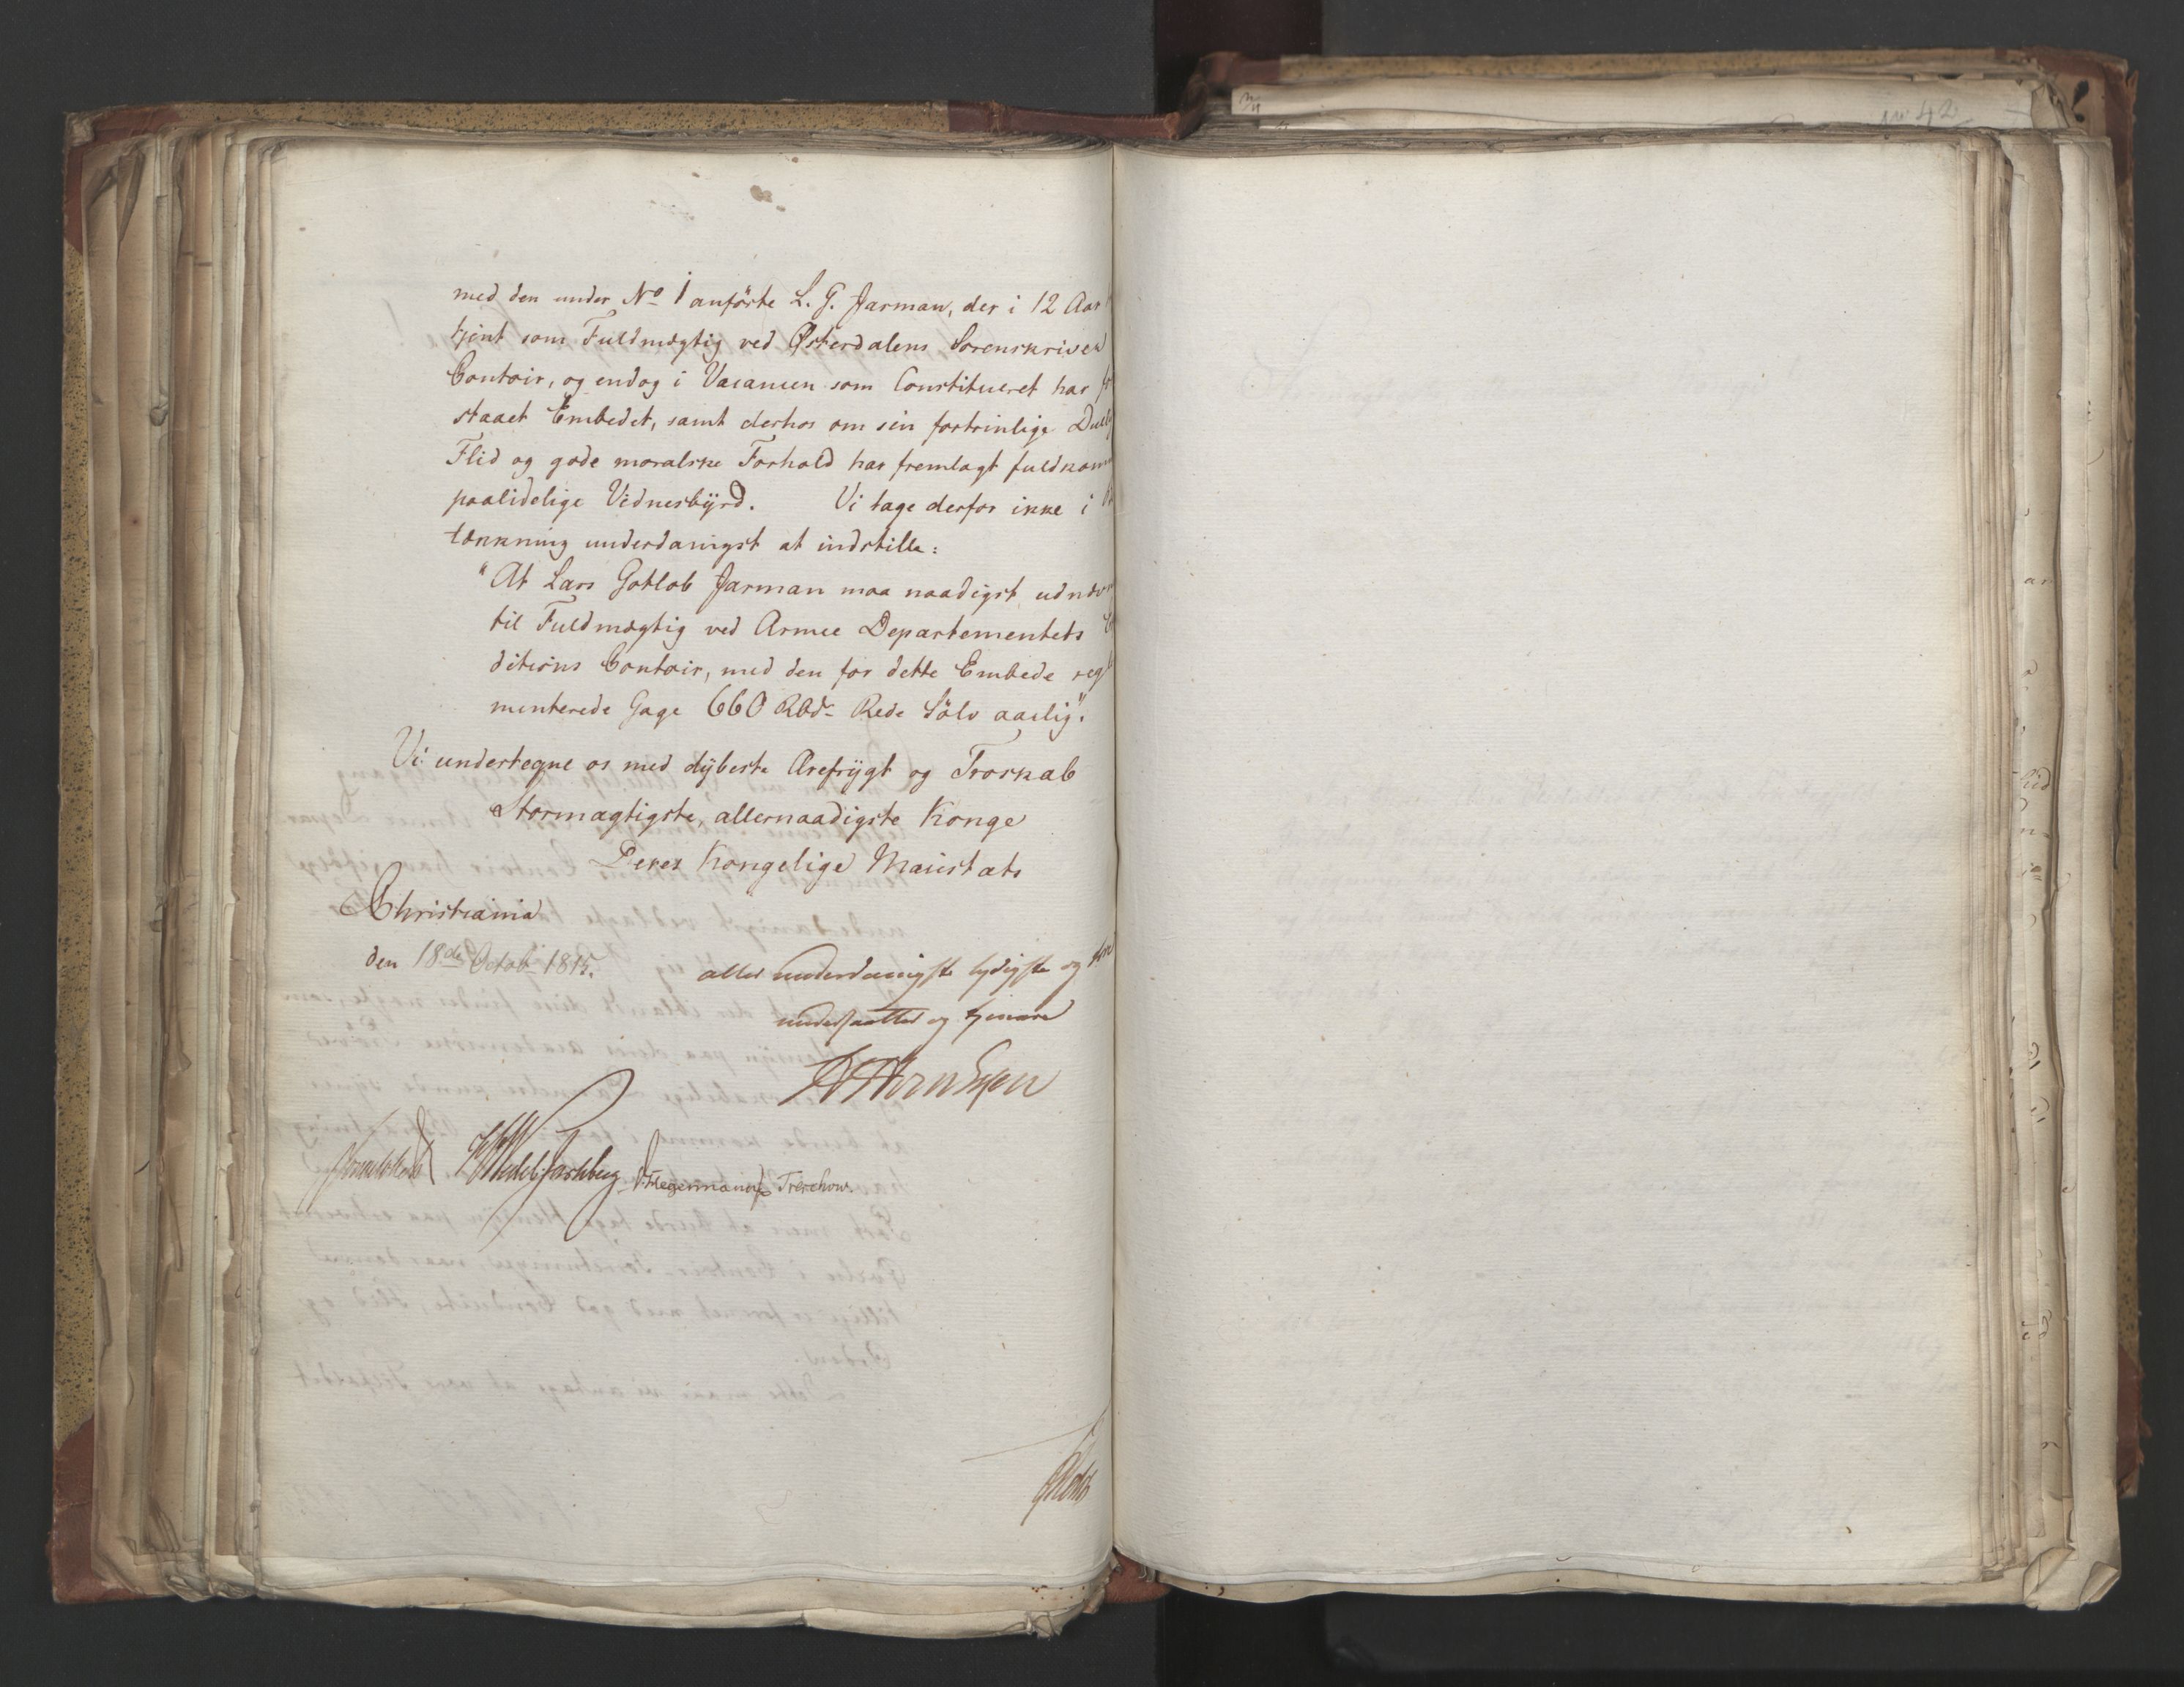 med den under No 1 anførte L. G. Jarman, der i 12 Aar
tjent som Fuldmægtig ved Østerdalens Sorenskriver
Contoir, og endog i Vacancen som Constitueret har
staaet Embedet, samt derhos om sin fortrinlige
Flid og gode moralske Forhold har fremlagt
paalidelige Vidnesbÿrd. Vi tage derfor ikke i
tænkning underdanigst at indstille:
"At Lars Gotlob Jarman maa naadigst
til Fuldmægtig ved Armee Departementets
ditions Contoir, med den for dette Embede
menterede Gage 660 Rbd. Rede Sölv aarlig".
Vi undertegne os med dÿbeste Ærefrÿgt og Troskab
Stormægtigste, allernaadigste Konge
Deres Kongelige Maiestæts
Christiania
den 18de Octobr 1815.
aller underdanigste lydigste og
undersaatter og tjenere
Wedel Jarlsberg Hegermann Treschow.
no 42